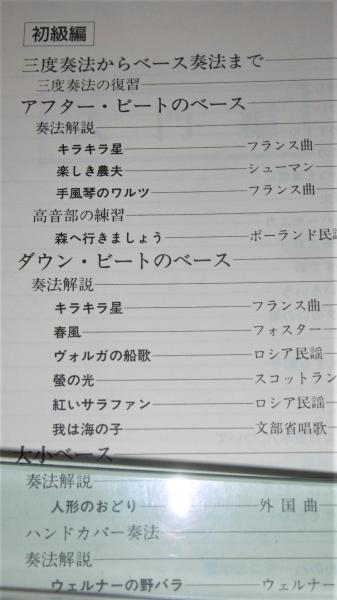 初級編
三度奏法からベース奏法まで
三度奏法の復習
アフター・ビートのベース
奏法解説
キラキラ星 フランス曲
楽しき農夫 シューマン
手風琴のワルツ フランス曲
高音部の練習
森へ行きましょう ポーランド民謡
ダウン・ビートのベース
奏法解説
キラキラ星 フランス曲
春風 フォスター
ヴォルガの船歌 ロシア民謡
螢の光 スコットラン
紅いサラファン ロシア民謡
我は海の子 文部省唱歌
大小ベース
奏法解説
人形のおどり 外国曲
ハンドカバー奏法
奏法解説
ウェルナーの野バラ ウェルナー